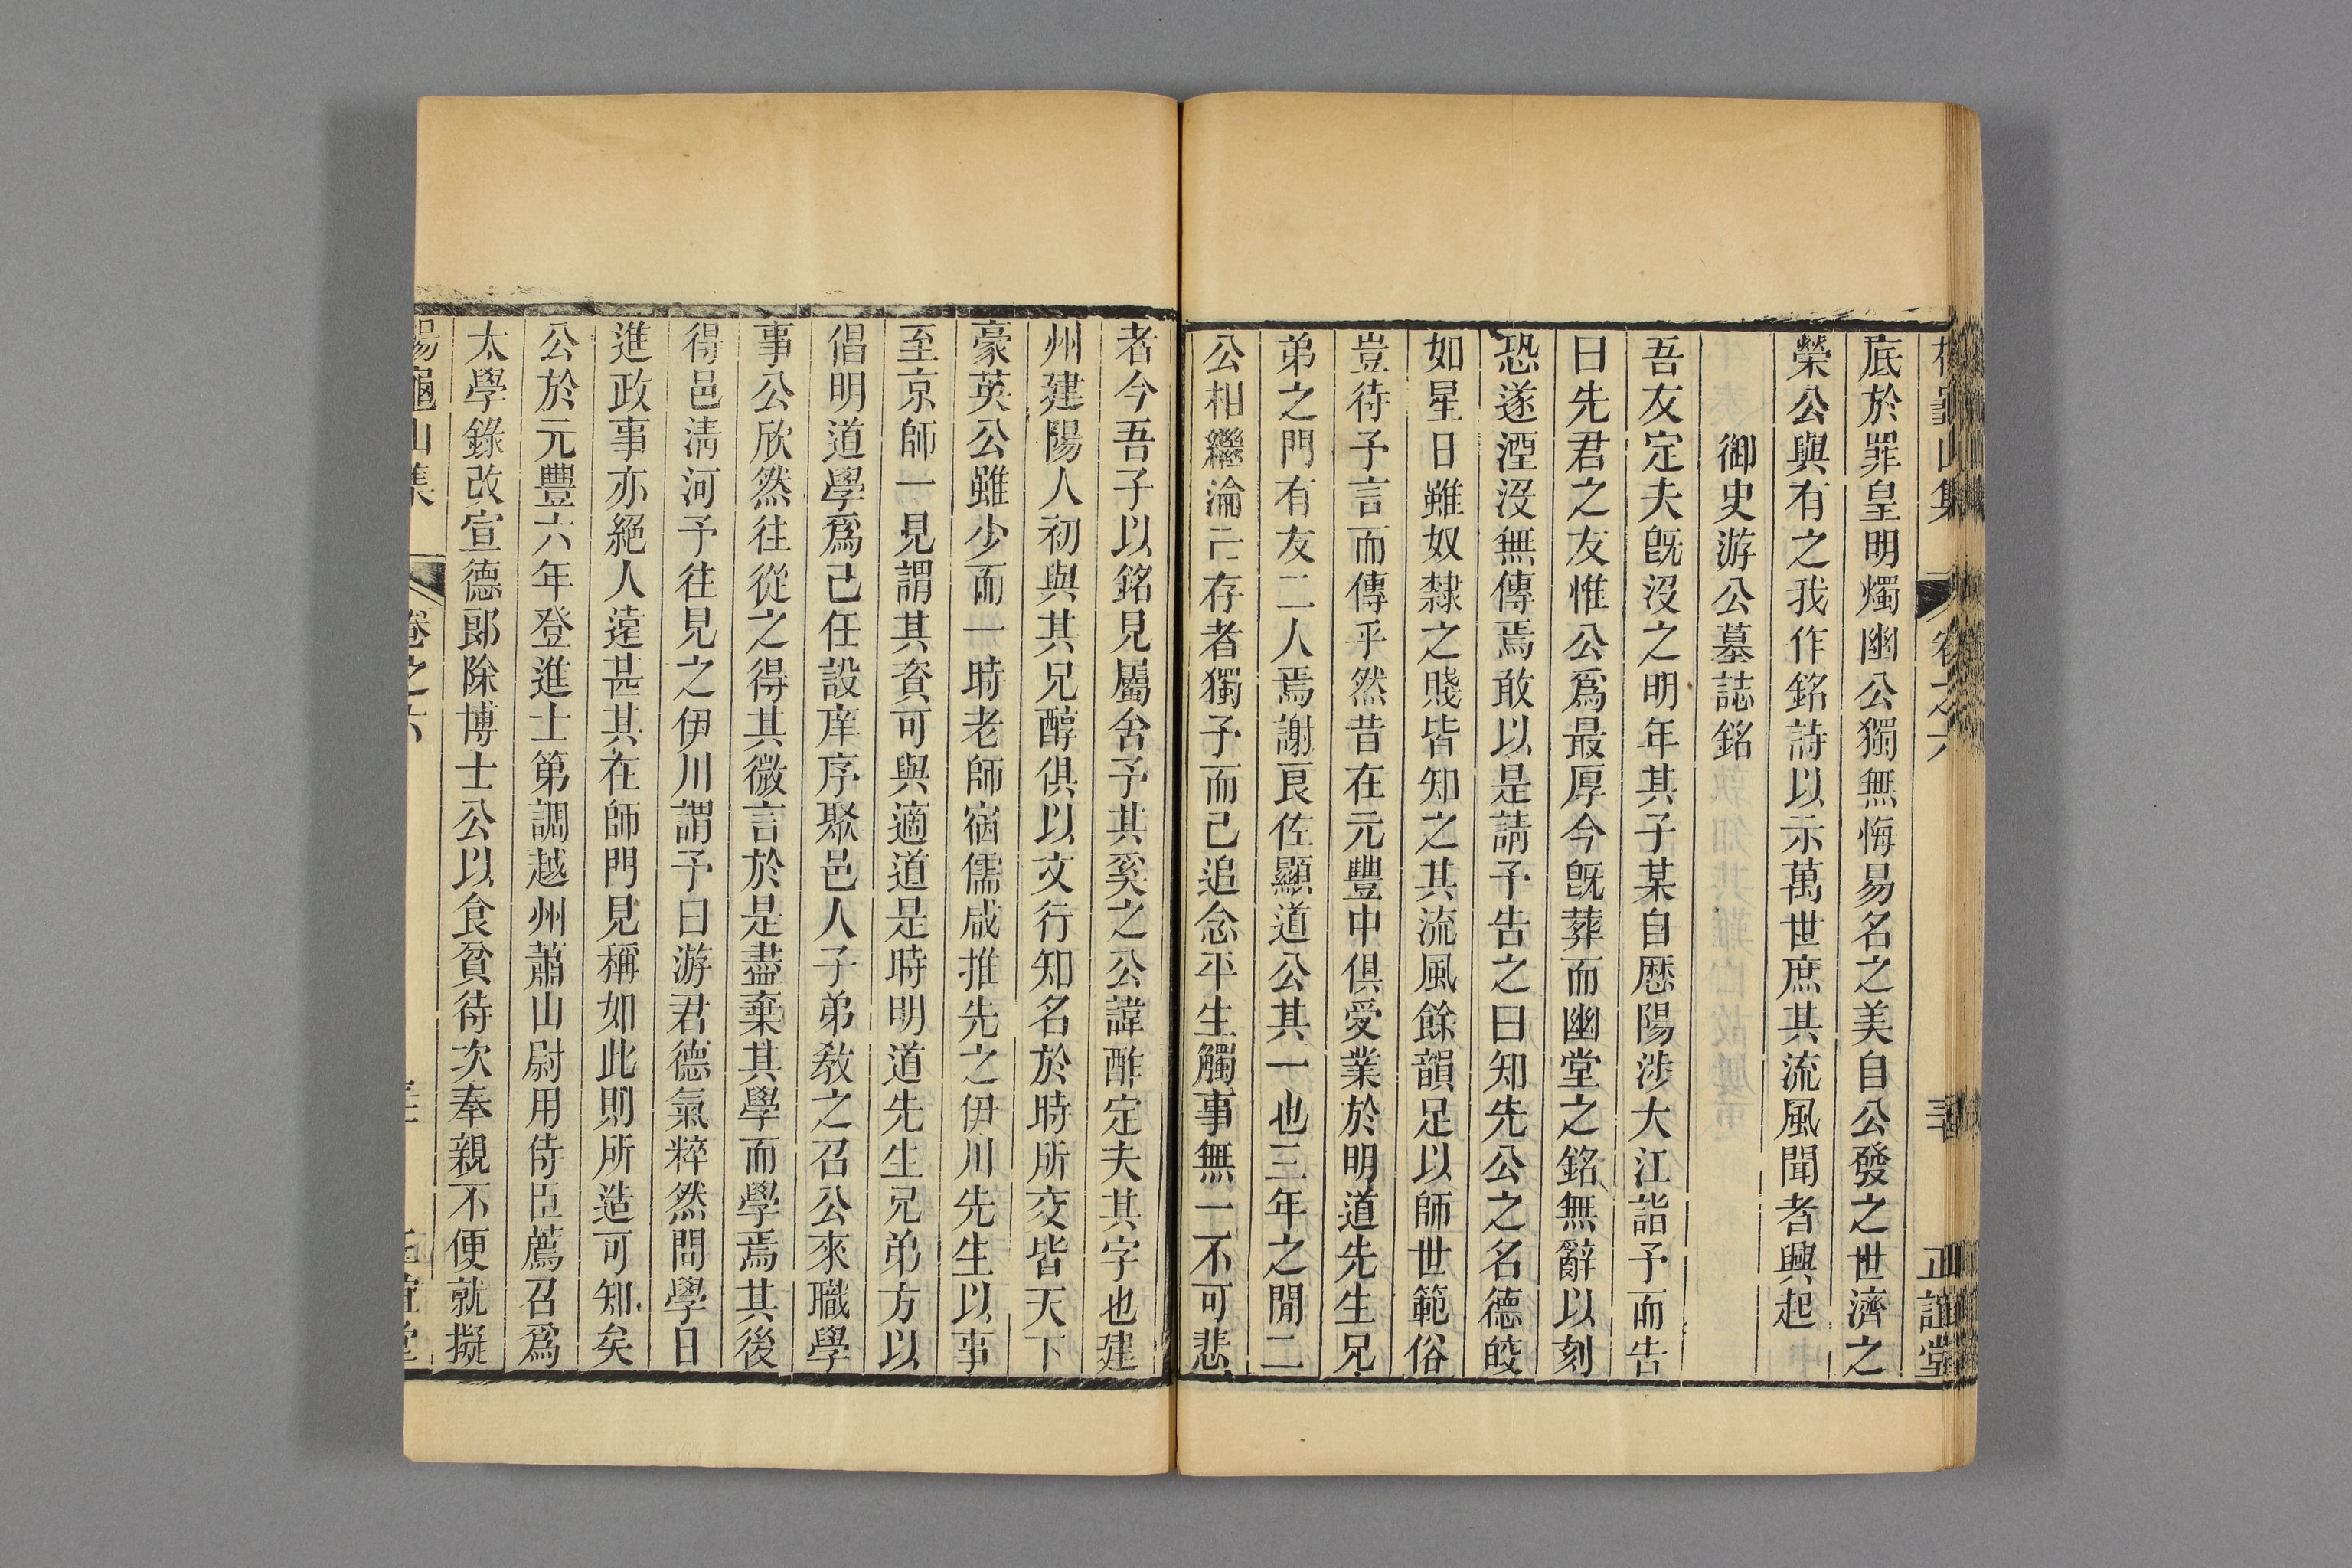 底於罪皇明燭幽公獨無悔易名之美自公發之世濟之
榮公與有之我作銘詩以示萬世庶其流風聞者興起
御史游公墓誌銘
吾友定夫旣沒之明年其子某自歷陽涉大江詣予而告
曰先君之友惟公爲最厚今旣葬而幽堂之銘無辭以刻
恐遂湮沒無傳焉敢以是請予告之曰知先公之名德皎
如星日雖奴隸之賤皆知之其流風餘韻足以師世範俗
豈待予言而傳乎然昔在元豐中俱受業於明道先生兄
弟之門有友二人焉謝良佐顯道公其一也三年之閒二
公相繼淪亡存者獨予而已追念平生觸事無一不可悲
者今吾子以銘見屬舍予其奚之公諱酢定夫其字也建
州建陽人初與其兄醇俱以文行知名於時所交皆天下
豪英公雖少而一時老師宿儒咸推先之伊川先生以事
至京師一見謂其資可與適道是時明道先生兄弟方以
倡明道學爲己任設庠序聚邑人子弟敎之召公來職學
事公欣然往從之得其微言於是盡棄其學而學焉其後
得邑淸河予往見之伊川謂予曰游君德氣粹然問學日
進政事亦絕人遠甚其在師門見稱如此則所造可知矣
公於元豐六年登進士第調越州蕭山尉用侍臣薦召爲
太學錄改宣德郞除博士公以食貧待次奉親不便就擬
楊龜山集 卷之六 正誼堂